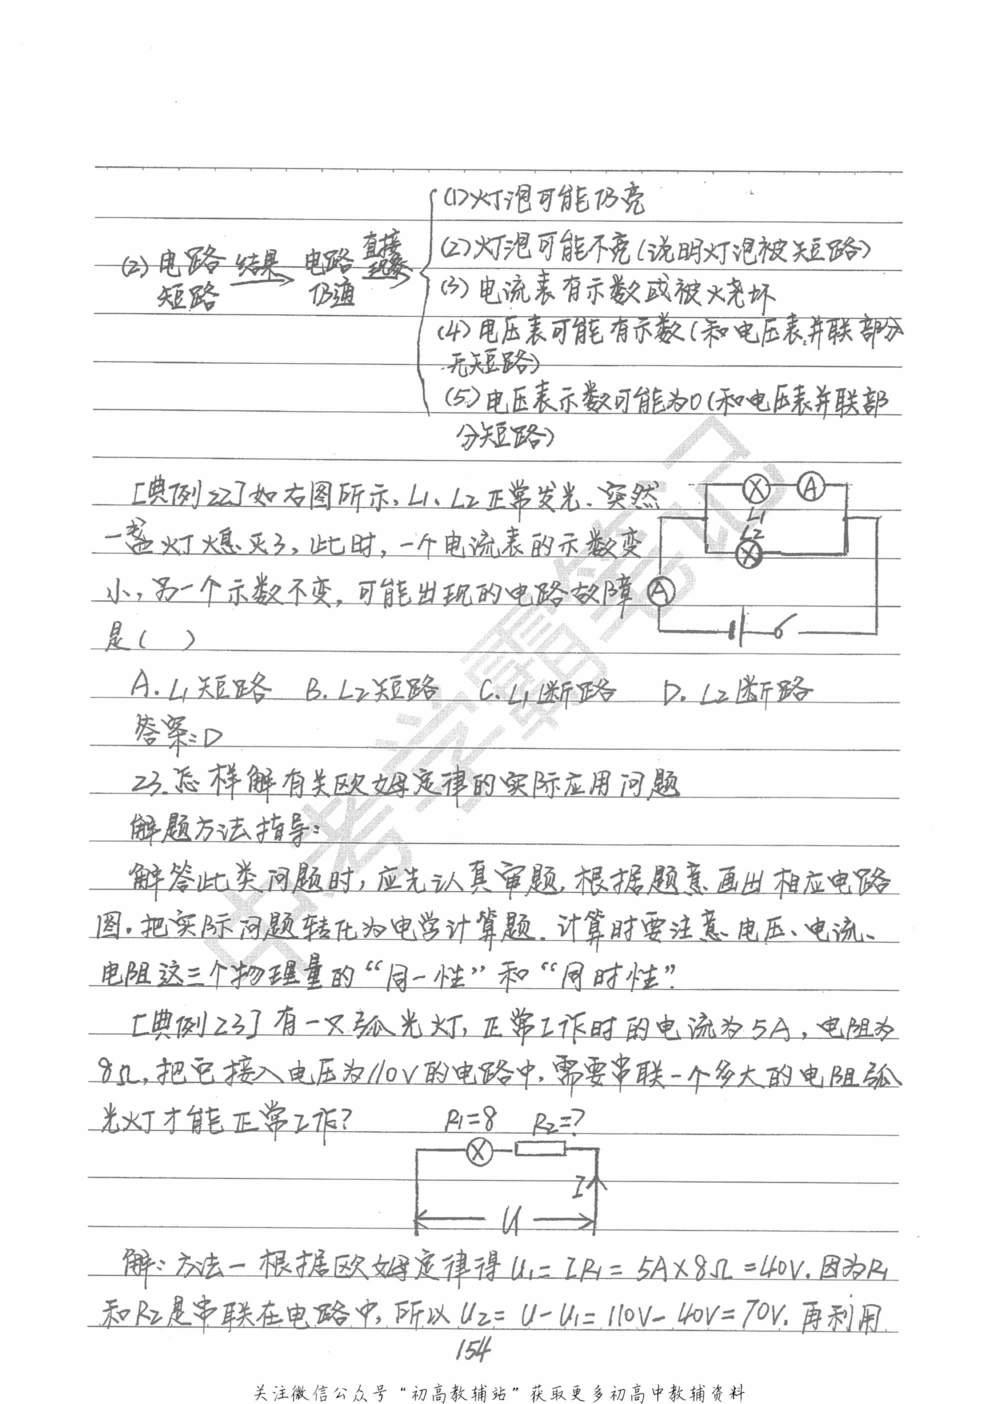 (1)灯泡可能仍亮
(2)灯泡可能不亮(说明灯泡被短路)
(2)电路短路 结果 电路仍通 直接现象
(3)电流表有示数或被烧坏
(4)电压表可能有示数(和电压表并联部分
无短路)
(5)电压表示数可能为0(和电压表并联部
分短路)
[典例22]如右图所示,L1、L2正常发光.突然
一盏灯熄灭了,此时,一个电流表的示数变
小,另一个示数不变,可能出现的电路故障
是( )
X A
L1
L2
X
A
A.L1短路 B.L2短路 C.L1断路 D.L2断路
答案:D
23.怎样解有关欧姆定律的实际应用问题
解题方法指导:
解答此类问题时,应先认真审题,根据题意画出相应电路
图.把实际问题转化为电学计算题.计算时要注意电压、电流、
电阻这三个物理量的“同一性”和“同时性”.
[典例23]有一只弧光灯,正常工作时的电流为5A,电阻为
8Ω,把它接入电压为110V的电路中,需要串联一个多大的电阻弧
光灯才能正常工作?
R1=8 R2=?
X
I
U
解:方法一根据欧姆定律得U1=IR1=5A×8Ω=40V.因为R1
和R2是串联在电路中,所以U2=U-U1=110V-40V=70V.再利用
154
关注微信公众号“初高教辅站”获取更多初高中教辅资料
中考学霸笔记